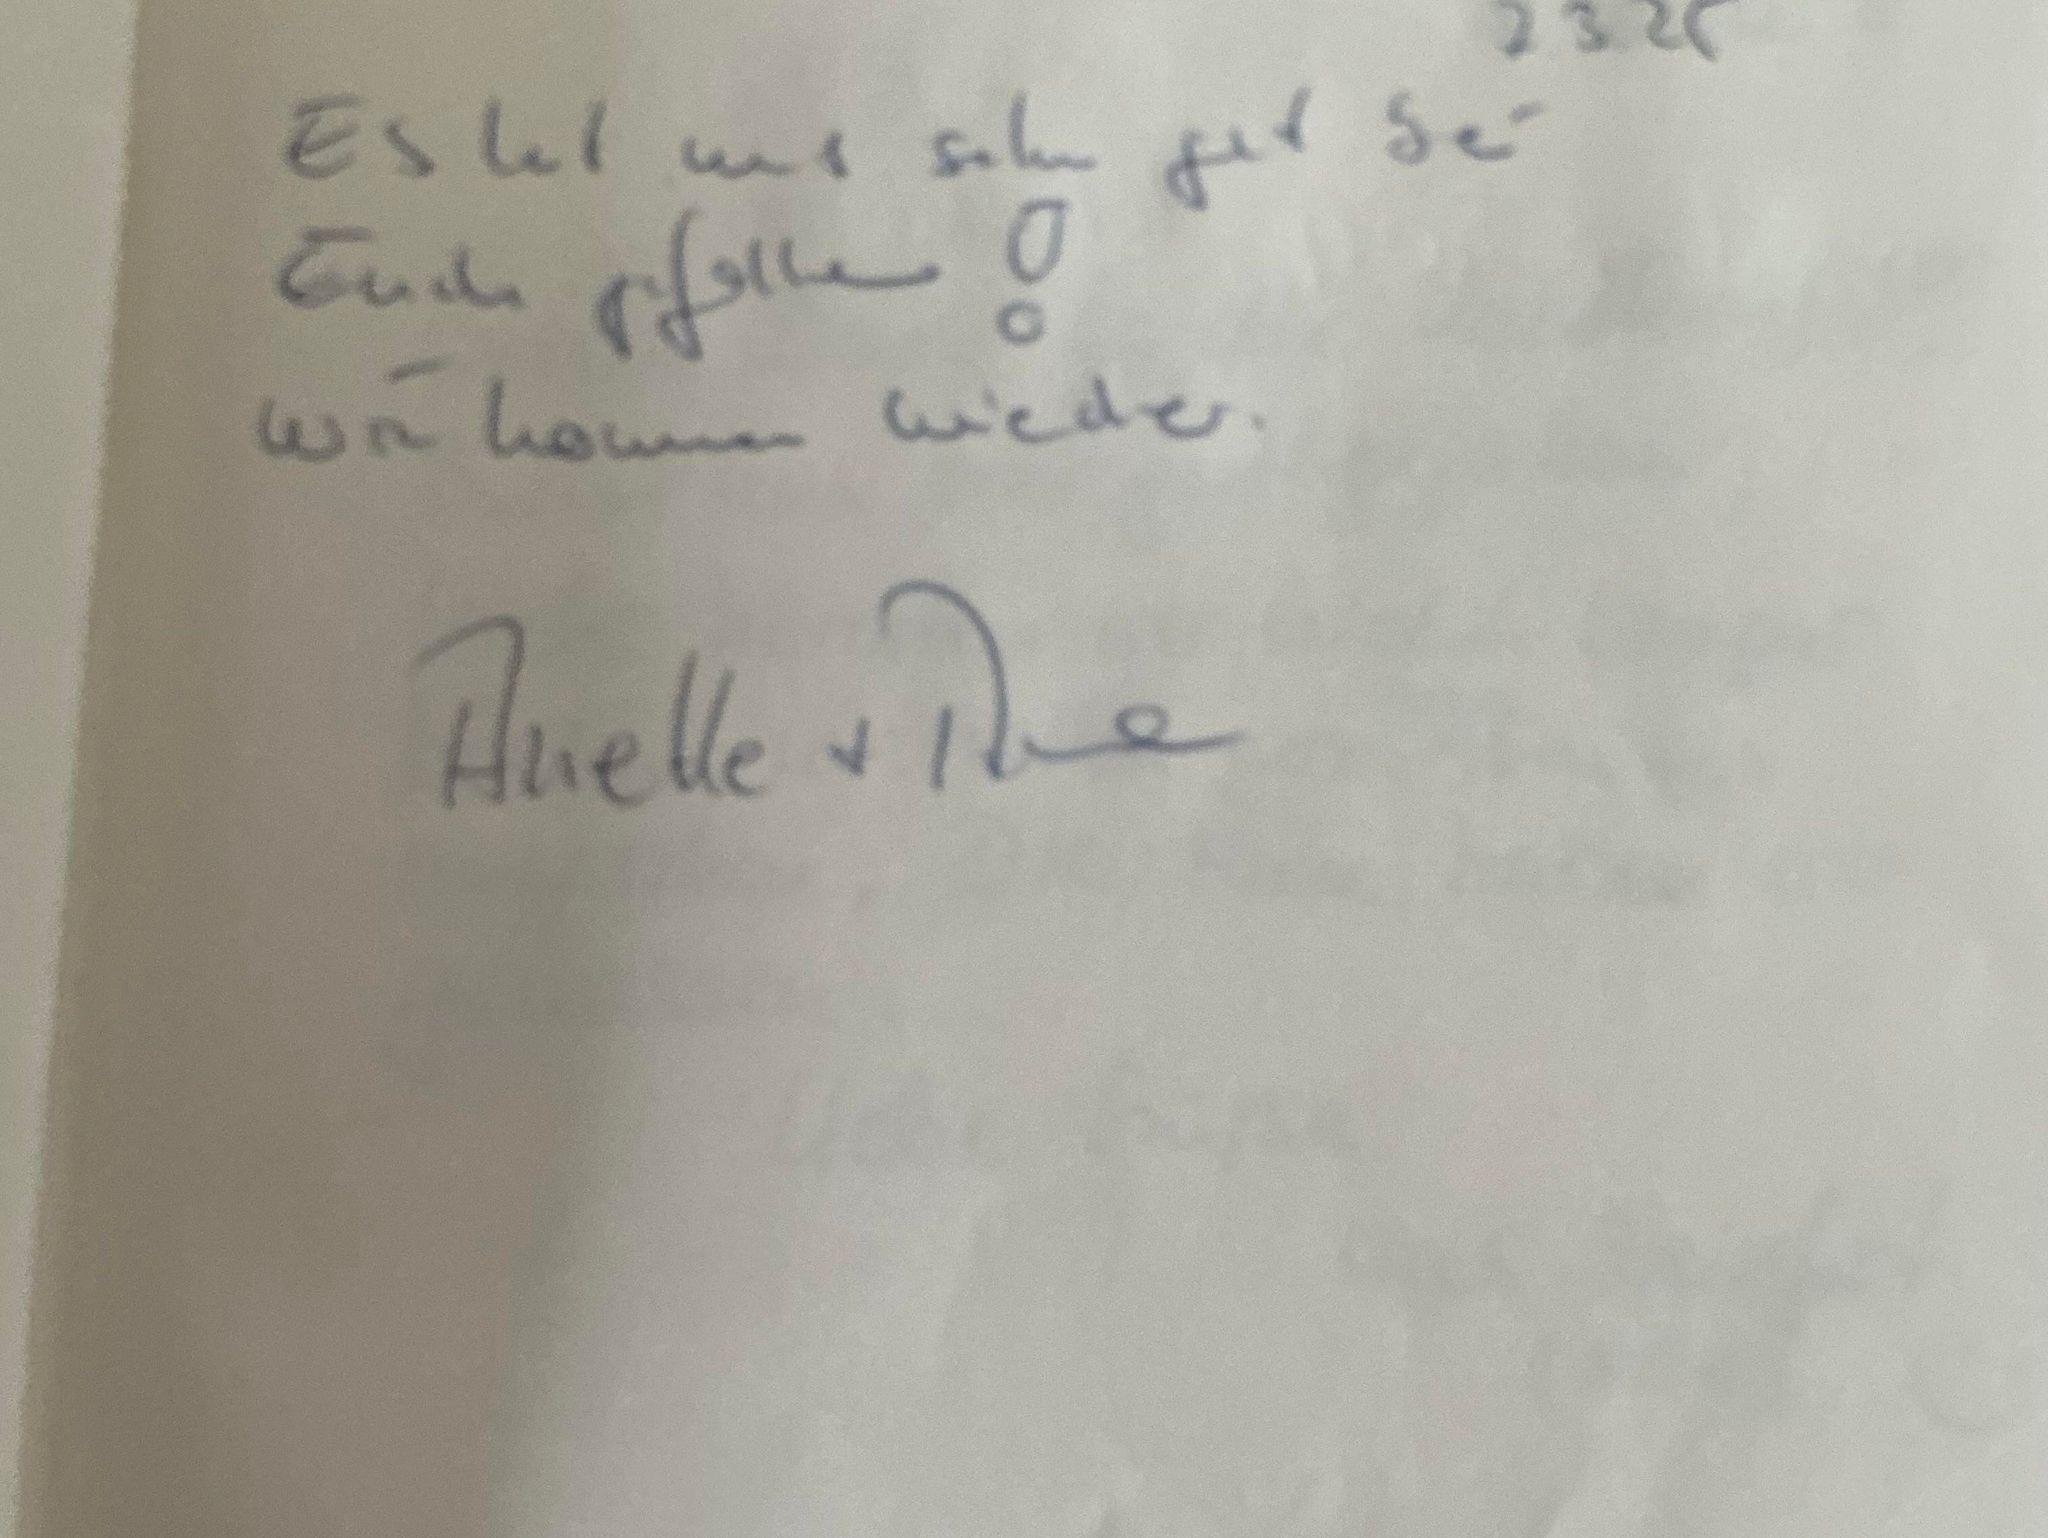 2 3 25
Es hat uns sehr gut bei
Euch gefallen!
Wir kommen wieder.
Arielle +